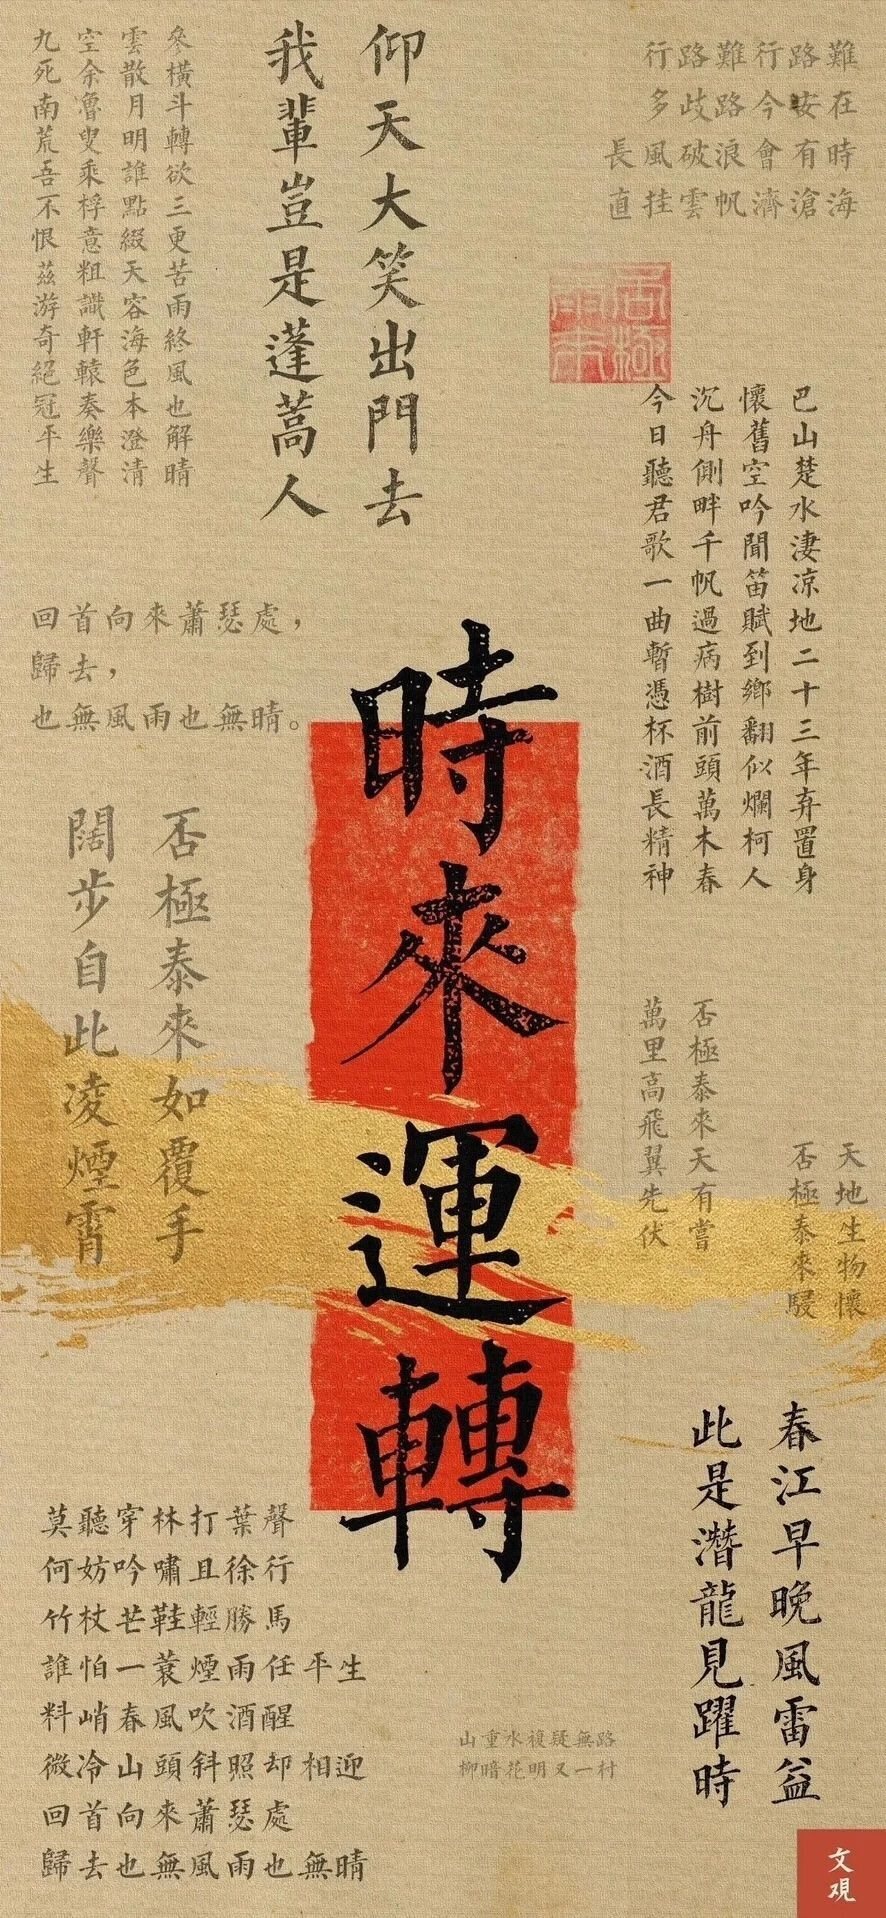 行路難行路難
多歧路今安在
長風破浪會有時
直挂雲帆濟滄海
仰天大笑出門去
我輩豈是蓬蒿人
參橫斗轉欲三更苦雨終風也解晴
雲散月明誰點綴天容海色本澄清
空余魯叟乘桴意粗識軒轅奏樂聲
九死南荒吾不恨茲游奇絕冠平生
巴山楚水淒涼地二十三年弃置身
懷舊空吟聞笛賦到鄉翻似爛柯人
沉舟側畔千帆過病樹前頭萬木春
今日聽君歌一曲暫憑杯酒長精神
回首向來蕭瑟處，
歸去，
也無風雨也無晴。
時來運轉
否極泰來如覆手
闊步自此凌煙霄
否極泰來天有嘗
萬里高飛翼先伏
天地生物懷
否極泰來駸
春江早晚風雷益
此是潛龍見躍時
莫聽穿林打葉聲
何妨吟嘯且徐行
竹杖芒鞋輕勝馬
誰怕一蓑煙雨任平生
料峭春風吹酒醒
微冷山頭斜照却相迎
回首向來蕭瑟處
歸去也無風雨也無晴
山重水複疑無路
柳暗花明又一村
文覌